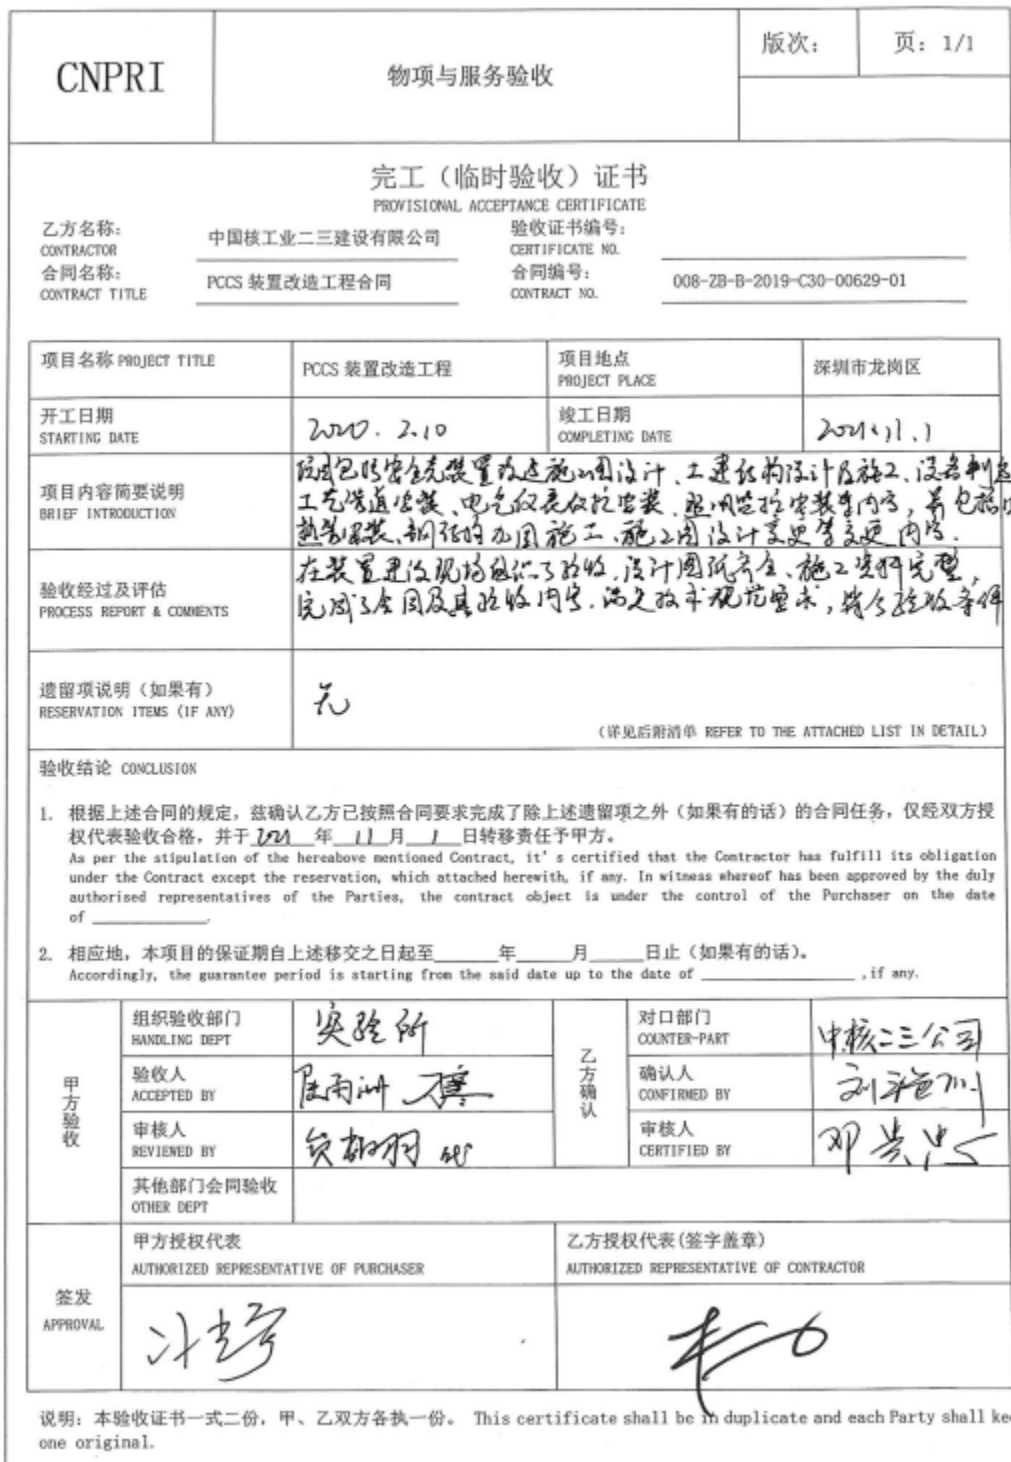 CNPRI
物项与服务验收
版次：
页：1/1
完工（临时验收）证书
PROVISIONAL ACCEPTANCE CERTIFICATE
乙方名称：
CONTRACTOR
中国核工业二三建设有限公司
验收证书编号：
CERTIFICATE NO.
合同名称：
CONTRACT TITLE
PCCS 装置改造工程合同
合同编号：
CONTRACT NO.
008-ZB-B-2019-C30-00629-01
项目名称 PROJECT TITLE
PCCS 装置改造工程
项目地点
PROJECT PLACE
深圳市龙岗区
开工日期
STARTING DATE
2020.2.10
竣工日期
COMPLETING DATE
2021.11.1
项目内容简要说明
BRIEF INTRODUCTION
安全壳装置改造施工图设计、土建结构设计及施工、设备制造
工艺管道安装、电气仪表仪控安装、照明监控安装等内容，并包括
施工、施工图设计变更等变更内容.
验收经过及评估
PROCESS REPORT & COMMENTS
在装置建设现场组织了验收，设计图纸齐全、施工资料完整，
完成了合同及其验收内容，满足技术规范要求，符合验收条件
遗留项说明（如果有）
RESERVATION ITEMS (IF ANY)
无
（详见后附清单 REFER TO THE ATTACHED LIST IN DETAIL）
验收结论 CONCLUSION
1. 根据上述合同的规定，兹确认乙方已按照合同要求完成了除上述遗留项之外（如果有的话）的合同任务，仅经双方授
权代表验收合格，并于 2021 年 11 月 1 日转移责任予甲方。
As per the stipulation of the hereabove mentioned Contract, it's certified that the Contractor has fulfill its obligation
under the Contract except the reservation, which attached herewith, if any. In witness whereof has been approved by the duly
authorised representatives of the Parties, the contract object is under the control of the Purchaser on the date
of ______.
2. 相应地，本项目的保证期自上述移交之日起至____年____月____日止（如果有的话）。
Accordingly, the guarantee period is starting from the said date up to the date of ______,if any.
甲方验收
组织验收部门
HANDLING DEPT
实验所
乙方确认
对口部门
COUNTER-PART
中核二三公司
验收人
ACCEPTED BY
确认人
CONFIRMED BY
审核人
REVIEWED BY
审核人
CERTIFIED BY
邓贵忠
其他部门会同验收
OTHER DEPT
签发
APPROVAL
甲方授权代表
AUTHORIZED REPRESENTATIVE OF PURCHASER
乙方授权代表(签字盖章)
AUTHORIZED REPRESENTATIVE OF CONTRACTOR
说明：本验收证书一式二份，甲、乙双方各执一份。 This certificate shall be in duplicate and each Party shall kee
one original.